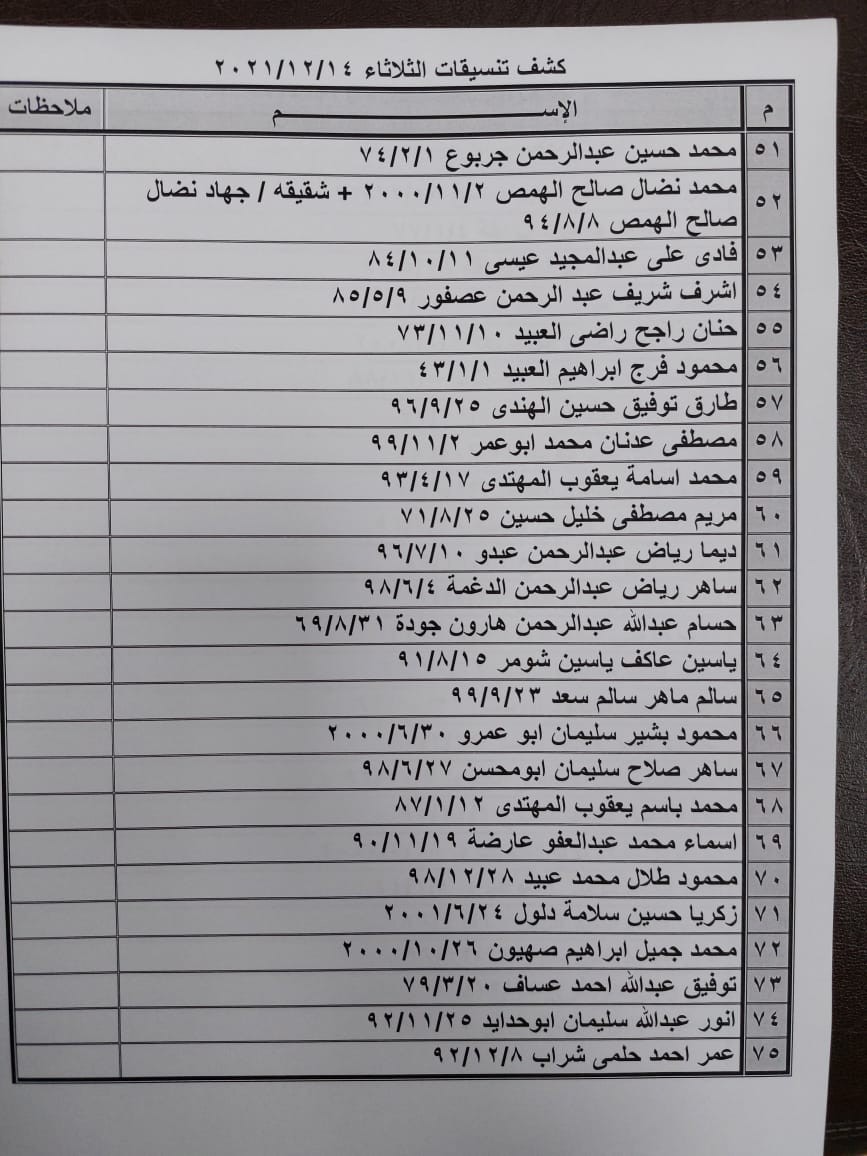 كشف تنسيقات الثلاثاء ٢٠٢١/١٢/١٤
م الإســـــــم ملاحظات
٥١ محمد حسين عبدالرحمن جربوع ٧٤/٢/١
٥٢ محمد نضال صالح الهمص ٢٠٠٠/١١/٢ + شقيقه / جهاد نضال
صالح الهمص ٩٤/٨/٨
٥٣ فادى على عبدالمجيد عيسى ٨٤/١٠/١١
٥٤ اشرف شريف عبد الرحمن عصفور ٨٥/٥/٩
٥٥ حنان راجح راضى العبيد ٧٣/١١/١٠
٥٦ محمود فرج ابراهيم العبيد ٤٣/١/١
٥٧ طارق توفيق حسين الهندى ٩٦/٩/٢٥
٥٨ مصطفى عدنان محمد ابوعمر ٩٩/١١/٢
٥٩ محمد اسامة يعقوب المهتدى ٩٣/٤/١٧
٦٠ مريم مصطفى خليل حسين ٧١/٨/٢٥
٦١ ديما رياض عبدالرحمن عبدو ٩٦/٧/١٠
٦٢ ساهر رياض عبدالرحمن الدغمة ٩٨/٦/٤
٦٣ حسام عبدالله عبدالرحمن هارون جودة ٦٩/٨/٣١
٦٤ ياسين عاكف ياسين شومر ٩١/٨/١٥
٦٥ سالم ماهر سالم سعد ٩٩/٩/٢٣
٦٦ محمود بشير سليمان ابو عمرو ٢٠٠٠/٦/٣٠
٦٧ ساهر صلاح سليمان ابومحسن ٩٨/٦/٢٧
٦٨ محمد باسم يعقوب المهتدى ٨٧/١/١٢
٦٩ اسماء محمد عبدالعفو عارضة ٩٠/١١/١٩
٧٠ محمود طلال محمد عبيد ٩٨/١٢/٢٨
٧١ زكريا حسين سلامة دلول ٢٠٠١/٦/٢٤
٧٢ محمد جميل ابراهيم صهيون ٢٠٠٠/١٠/٢٦
٧٣ توفيق عبدالله احمد عساف ٧٩/٣/٢٠
٧٤ انور عبدالله سليمان ابوحدايد ٩٢/١١/٢٥
٧٥ عمر احمد حلمى شراب ٩٢/١٢/٨